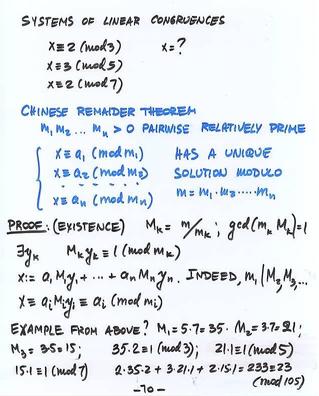 SYSTEMS OF LINEAR CONGRUENCES
x≡2 (mod 3) x=?
x≡3 (mod 5)
x≡2 (mod 7)
CHINESE REMAIDER THEOREM
m₁ m₂ ... mₙ > 0 PAIRWISE RELATIVELY PRIME
x≡a₁ (mod m₁) HAS A UNIQUE
x≡a₂ (mod m₂) SOLUTION MODULO
x≡aₙ (mod mₙ) m=m₁·m₂·····mₙ
PROOF: (EXISTENCE) Mₖ = m/mₖ ; gcd(mₖ Mₖ)=1
∃yₖ Mₖyₖ≡1 (mod mₖ)
x:= a₁M₁y₁ + ··· + aₙMₙyₙ. INDEED, m₁|M₂,M₃,...
x≡ aᵢMᵢyᵢ ≡ aᵢ (mod mᵢ)
EXAMPLE FROM ABOVE? M₁=5·7=35. M₂=3·7=21;
M₃=3·5=15; 35·2≡1 (mod 3); 21·1≡1 (mod 5)
15·1≡1 (mod 7) 2·35·2 + 3·21·1 + 2·15·1=233≡23
(mod 105)
-70-